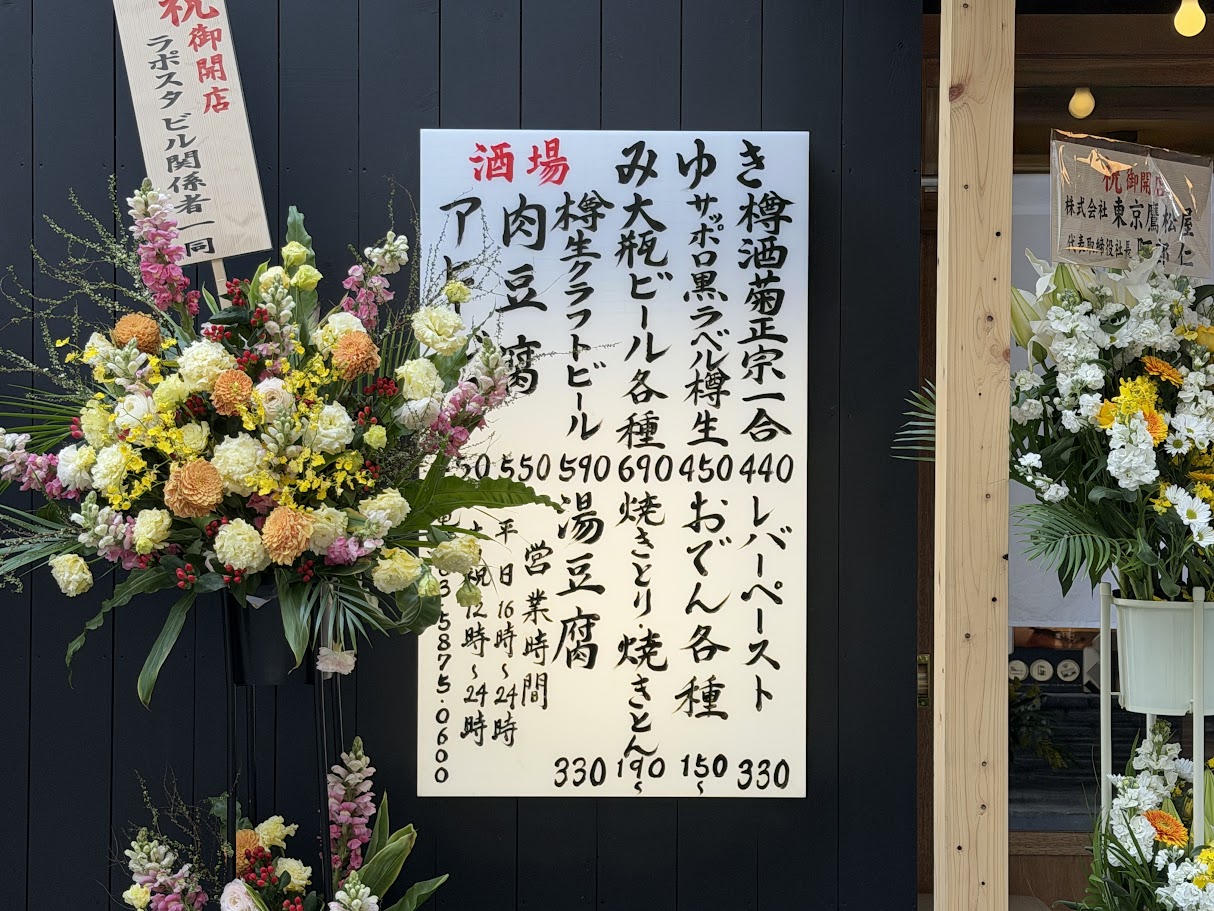 祝御開店
ラポスタビル関係者一同
酒場 みゆき
樽酒菊正宗一合 440
サッポロ黒ラベル樽生 450
大瓶ビール各種 690
樽生クラフトビール 590
肉豆腐 550
レバーペースト 330
おでん各種 150〜
焼きとり・焼きとん 190〜
湯豆腐 330
営業時間
平日 16時〜24時
祝12時〜24時
03-5875-0600
祝御開店
株式会社 東京鷹松屋
代表取締役社長